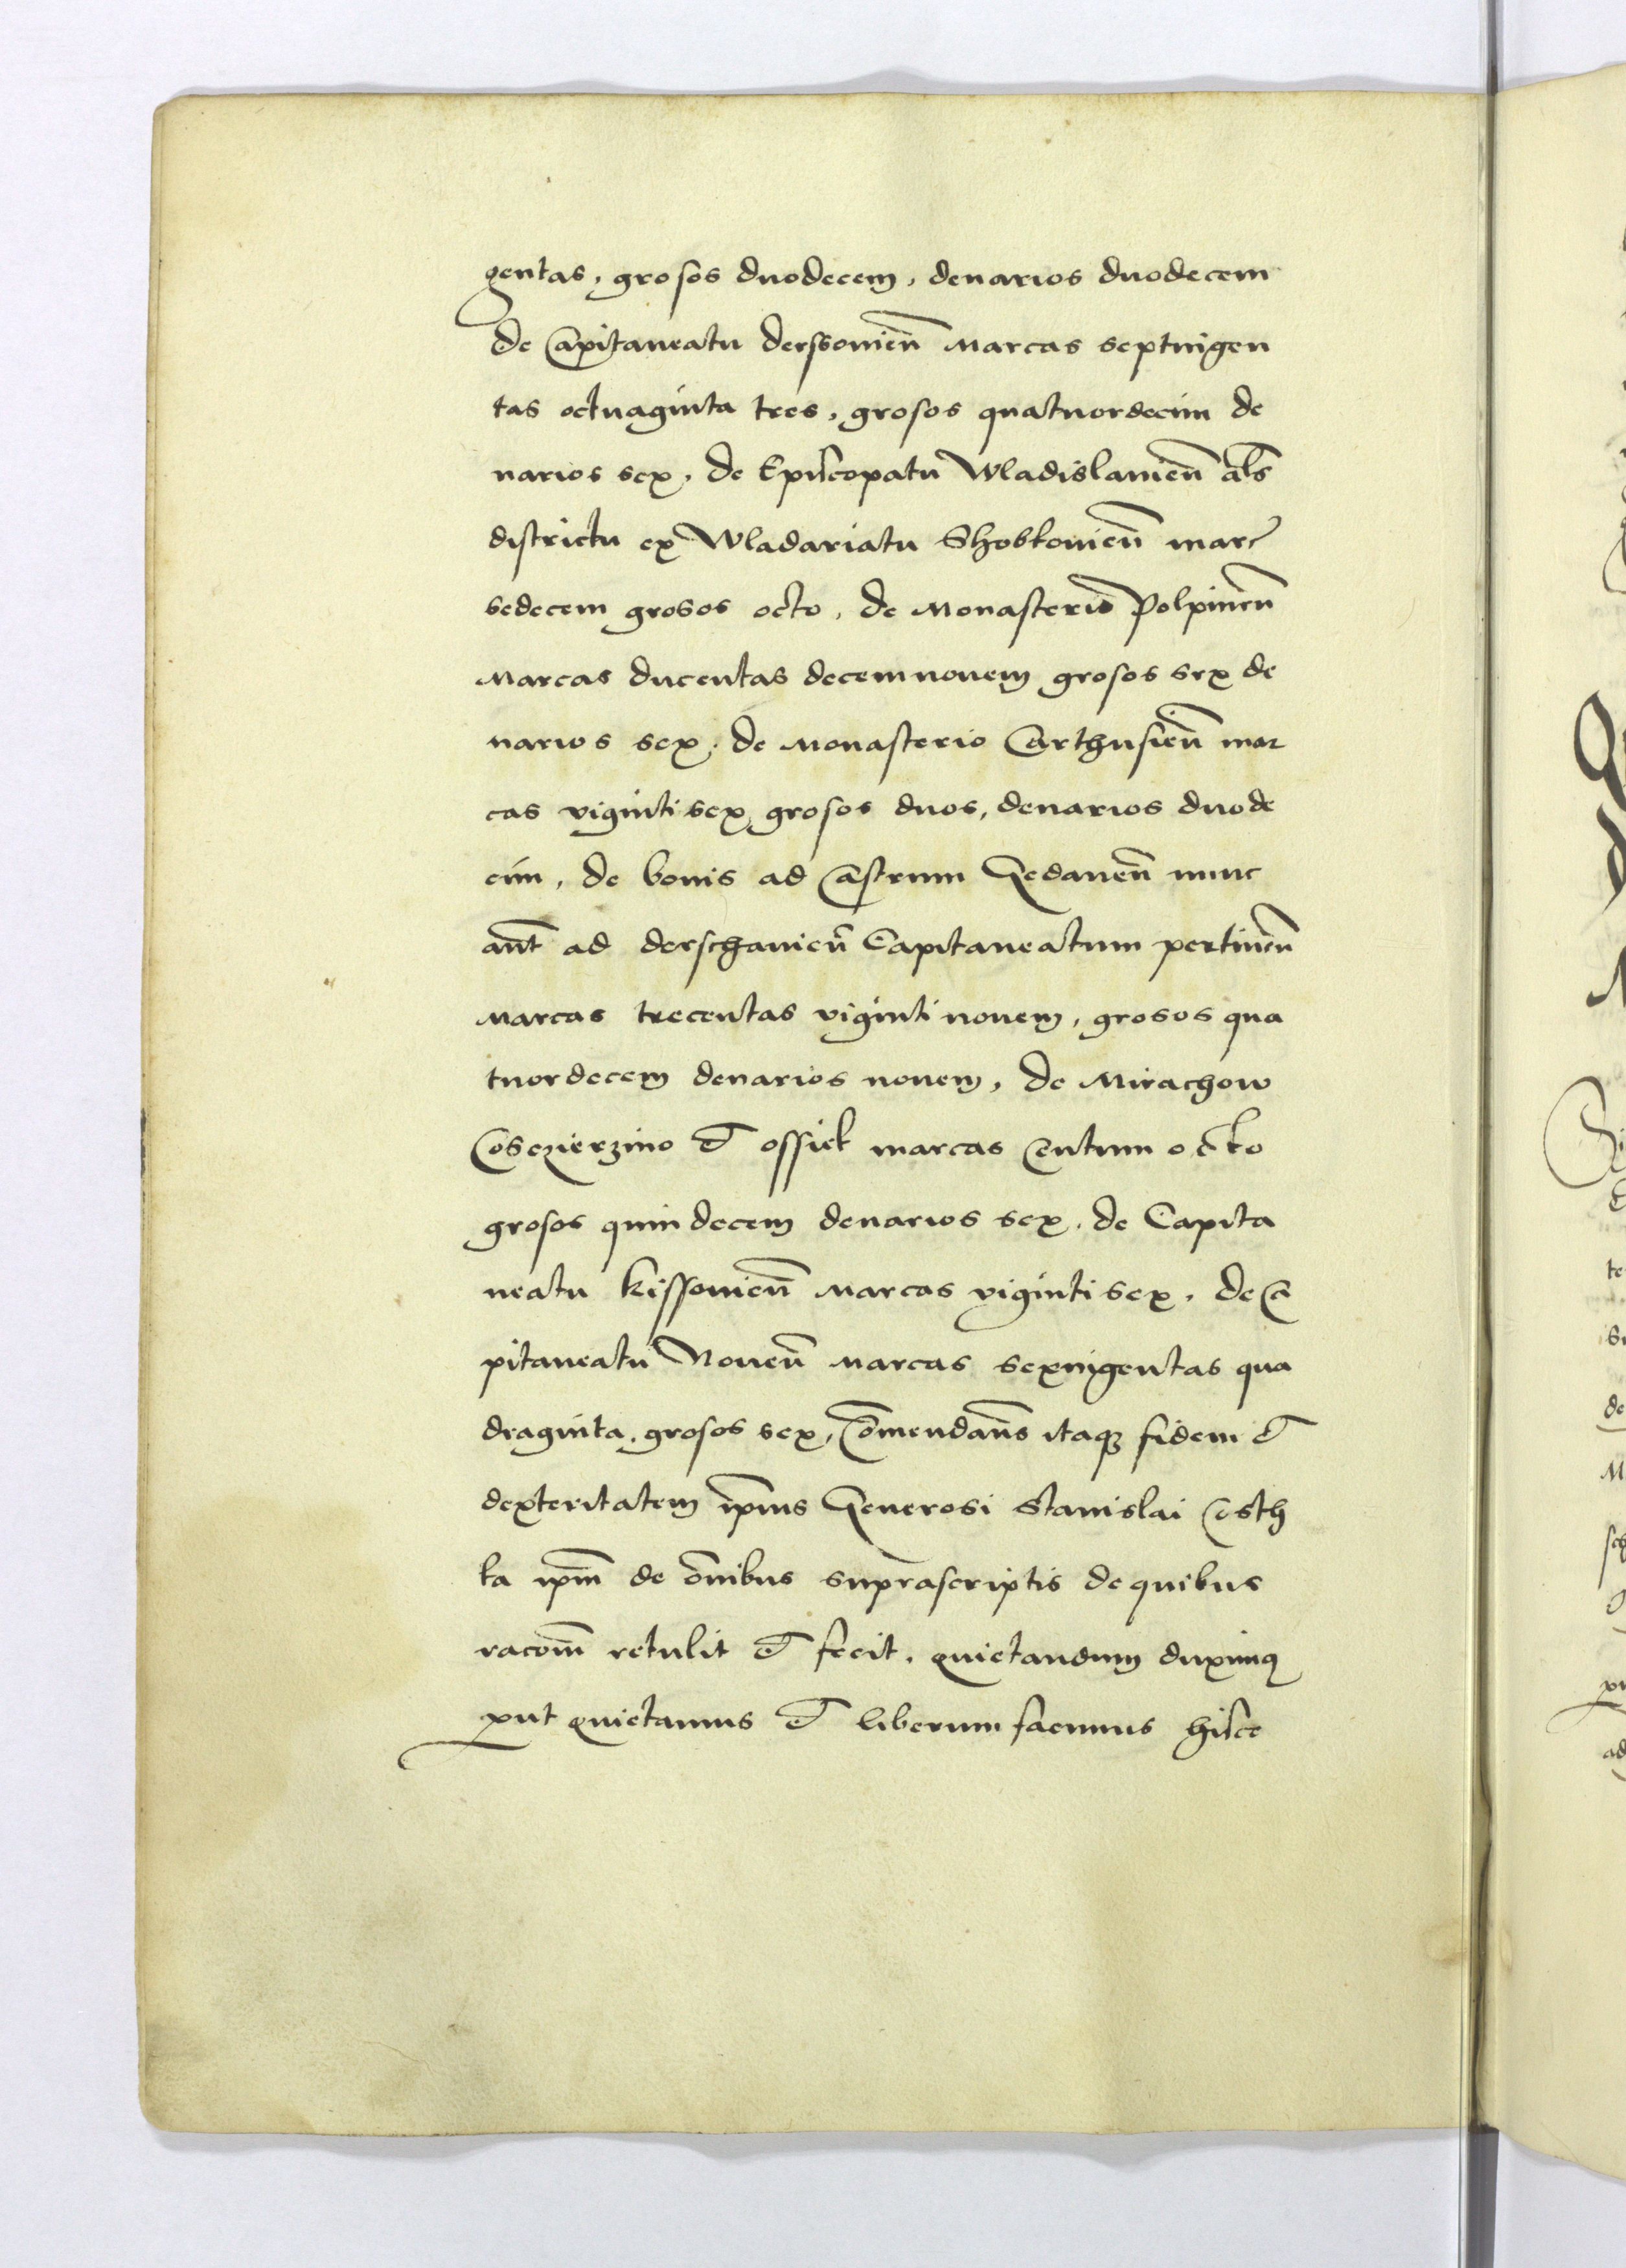 gentas, grosos duodecem, denarios duodecem
de Capitaneatu derssouien̄ Marcas septuigen
tas octuaginta tres, grosos quatuordecim de
narios sex, de Episcopatu Wladislauien̄ al̄s
districtu ex Wladariatu Shobkouien̄ marc
sedecem grosos octo, de Monasterio Polpinen̄
Marcas ducentas decemnouem grosos sex de
narios sex, de Monasterio Carthusien̄ mar
cas viginti sex grosos duos, denarios duode
cim, de bonis ad Castrum Gedanen̄ nunc
aūt ad derschauien̄ Capitaneatum pertinen̄
Marcas trecentas viginti nouem, grosos qua
tuordecem denarios nouem, de Mirachow
Cosczierzino et ossiek marcas Centum octo
grosos quindecem denarios sex, de Capita
neatu kissouien̄ Marcas viginti sex, de Ca
pitaneatu Nouen̄ Marcas sexuigentas qua
draginta, grosos sex, Com̄endan̄s itaqʒ fidem et
dexteritatem ip̄ius Generosi Stanislai Costh
ka ip̄m de om̄ibus suprascriptis de quibus
racōm retulit et fecit, quietandum duximꝯ
ꝓut quietamus et liberum facimus hisce